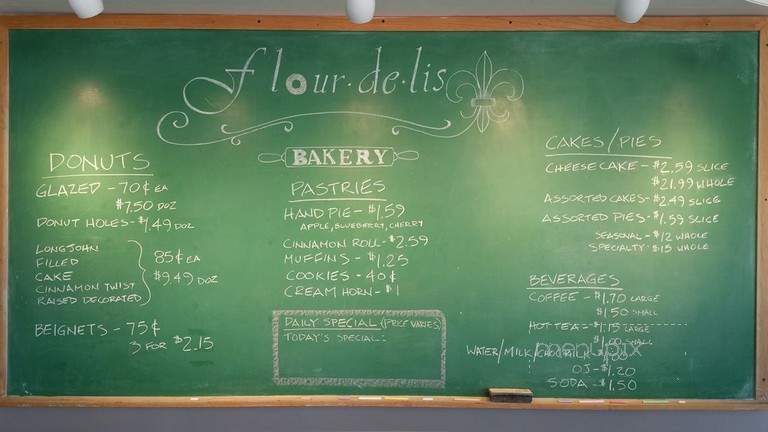 flour·de·lis
BAKERY
DONUTS
GLAZED - 70¢ EA
$7.50 DOZ
DONUT HOLES - $1.49 DOZ
LONGJOHN
FILLED
CAKE
CINNAMON TWIST
RAISED DECORATED
85¢ EA
$9.49 DOZ
BEIGNETS - 75¢
3 FOR $2.15
PASTRIES
HAND PIE - $1.59
APPLE, BLUEBERRY, CHERRY
CINNAMON ROLL - $2.59
MUFFINS - $1.25
COOKIES - 40¢
CREAM HORN - $1
DAILY SPECIAL (PRICE VARIES)
TODAY'S SPECIAL:
CAKES/PIES
CHEESECAKE - $2.59 SLICE
$21.99 WHOLE
ASSORTED CAKES - $2.49 SLICE
ASSORTED PIES - $1.59 SLICE
SEASONAL - $12 WHOLE
SPECIALTY - $15 WHOLE
BEVERAGES
COFFEE - $1.70 LARGE
$1.50 SMALL
HOT TEA - $1.15 LARGE
SMALL
WATER/MILK/
OJ - $1.20
SODA - $1.50
menupix